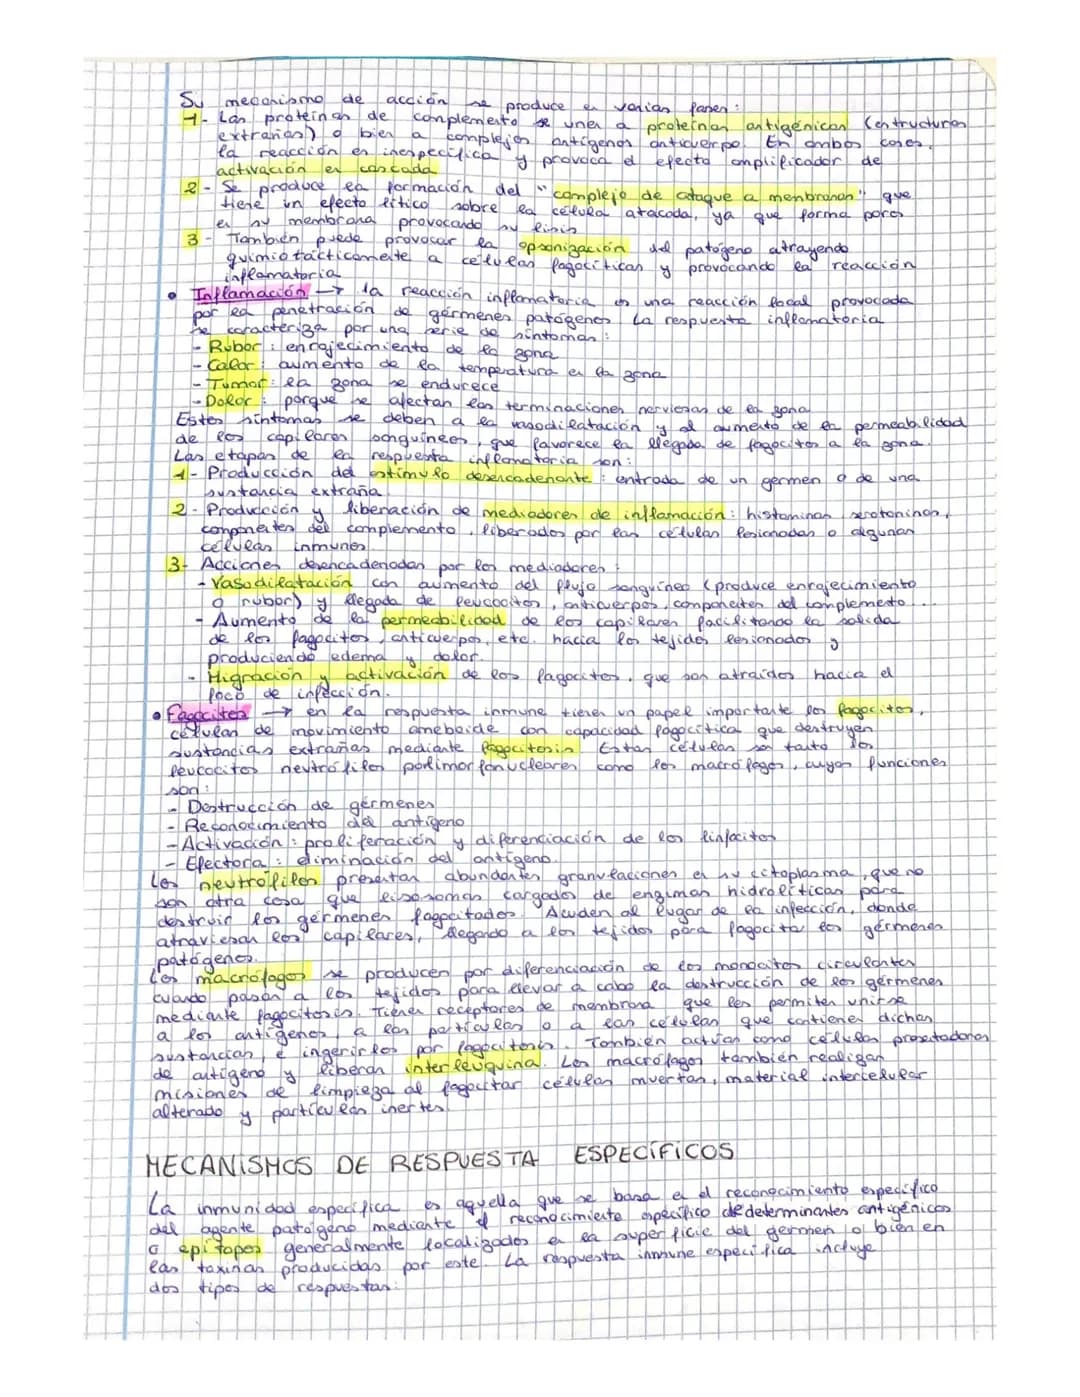 Su mecanismo de acción se produce en varias fases:
1- Las proteínas de complemento se unen a proteínas antigénicas (estructuras
extrañas) o bien a complejos antígenos anticuerpo. En ambos casos,
la reacción es inespecífica y provoca el efecto amplificador de
activación en cascada
2- Se produce la formación del "complejo de ataque a menbranas" que
tiene un efecto lítico sobre la célula atacada, ya que forma poros
en su membrana provocando su lisis
3- También puede provocar la opsonización del patógeno atrayendo
quimiotácticamente a células fagocíticas y provocando la reacción
inflamatoria
• Inflamación → la reacción inflamatoria es una reacción local provocada
por la penetración de gérmenes patógenos La respuesta inflamatoria
se caracteriza por una serie de síntomas:
- Rubor: enrojecimiento de la zona
- Calor: aumento de la temperatura en la zona
- Tumor: la zona se endurece
- Dolor: porque se afectan las terminaciones nerviosas de la zona
Estos síntomas se deben a la vasodilatación y al aumento de la permeabilidad
de los capilares sanguíneos, que favorece la llegada de fagocitos a la zona.
Las etapas de la respuesta inflamatoria son:
1- Producción del estímulo desencadenante: entrada de un germen o de una
sustancia extraña.
2- Producción y liberación de mediadores de inflamación: histaminas serotoninas,
componentes del complemento, liberados por las células lesionadas o algunas
células inmunes
3- Acciones desencadenadas por los mediadores:
- Vasodilatación con aumento del flujo sanguíneo (produce enrojecimiento
o rubor) y llegada de leucocitos, anticuerpos, componentes del complemento...
- Aumento de la permeabilidad de los capilares facilitando la salida
de los fagocitos, anticuerpos, etc. hacia los tejidos lesionados y
produciendo edema y dolor.
- Migración y activación de los fagocitos, que son atraídos hacia el
foco de infección.
• Fagocitos → en la respuesta inmune tienen un papel importante los fagocitos,
células de movimiento ameboide con capacidad fagocítica que destruyen
sustancias extrañas mediante fagocitosis Estas células son tanto los
leucocitos neutrófilos polimorfonucleares como los macrófagos, cuyas funciones
son:
- Destrucción de gérmenes
- Reconocimiento del antígeno
- Activación: proliferación y diferenciación de los linfocitos
- Efectora: eliminación del antígeno.
Los neutrófilos presentan abundantes granulaciones en su citoplasma, que no
son otra cosa que lisosomas cargados de enzimas hidrolíticas para
destruir los gérmenes fagocitados. Acuden al lugar de la infección, donde
atraviesan los capilares, llegando a los tejidos para fagocitar los gérmenes
patógenos.
Los macrófagos se producen por diferenciación de los monocitos circulantes
cuando pasan a los tejidos para llevar a cabo la destrucción de los gérmenes
mediante fagocitosis. Tienen receptores de membrana que les permiten unirse
a los antígenos, a las partículas o a las células que contienen dichas
sustancias, e ingerirlos por fagocitosis. También actúan como células presentadoras
de antígeno y liberan interleuquina. Los macrófagos también realizan
misiones de limpieza al fagocitar células muertas, material intercelular
alterado y partículas inertes.
MECANISMOS DE RESPUESTA ESPECÍFICOS
La inmunidad específica es aquella que se basa en el reconocimiento específico
del agente patógeno mediante el reconocimiento específico de determinantes antigénicos
o epítopos generalmente localizados en la superficie del germen, o bien en
las toxinas producidas por este. La respuesta inmune específica incluye
dos tipos de respuestas: